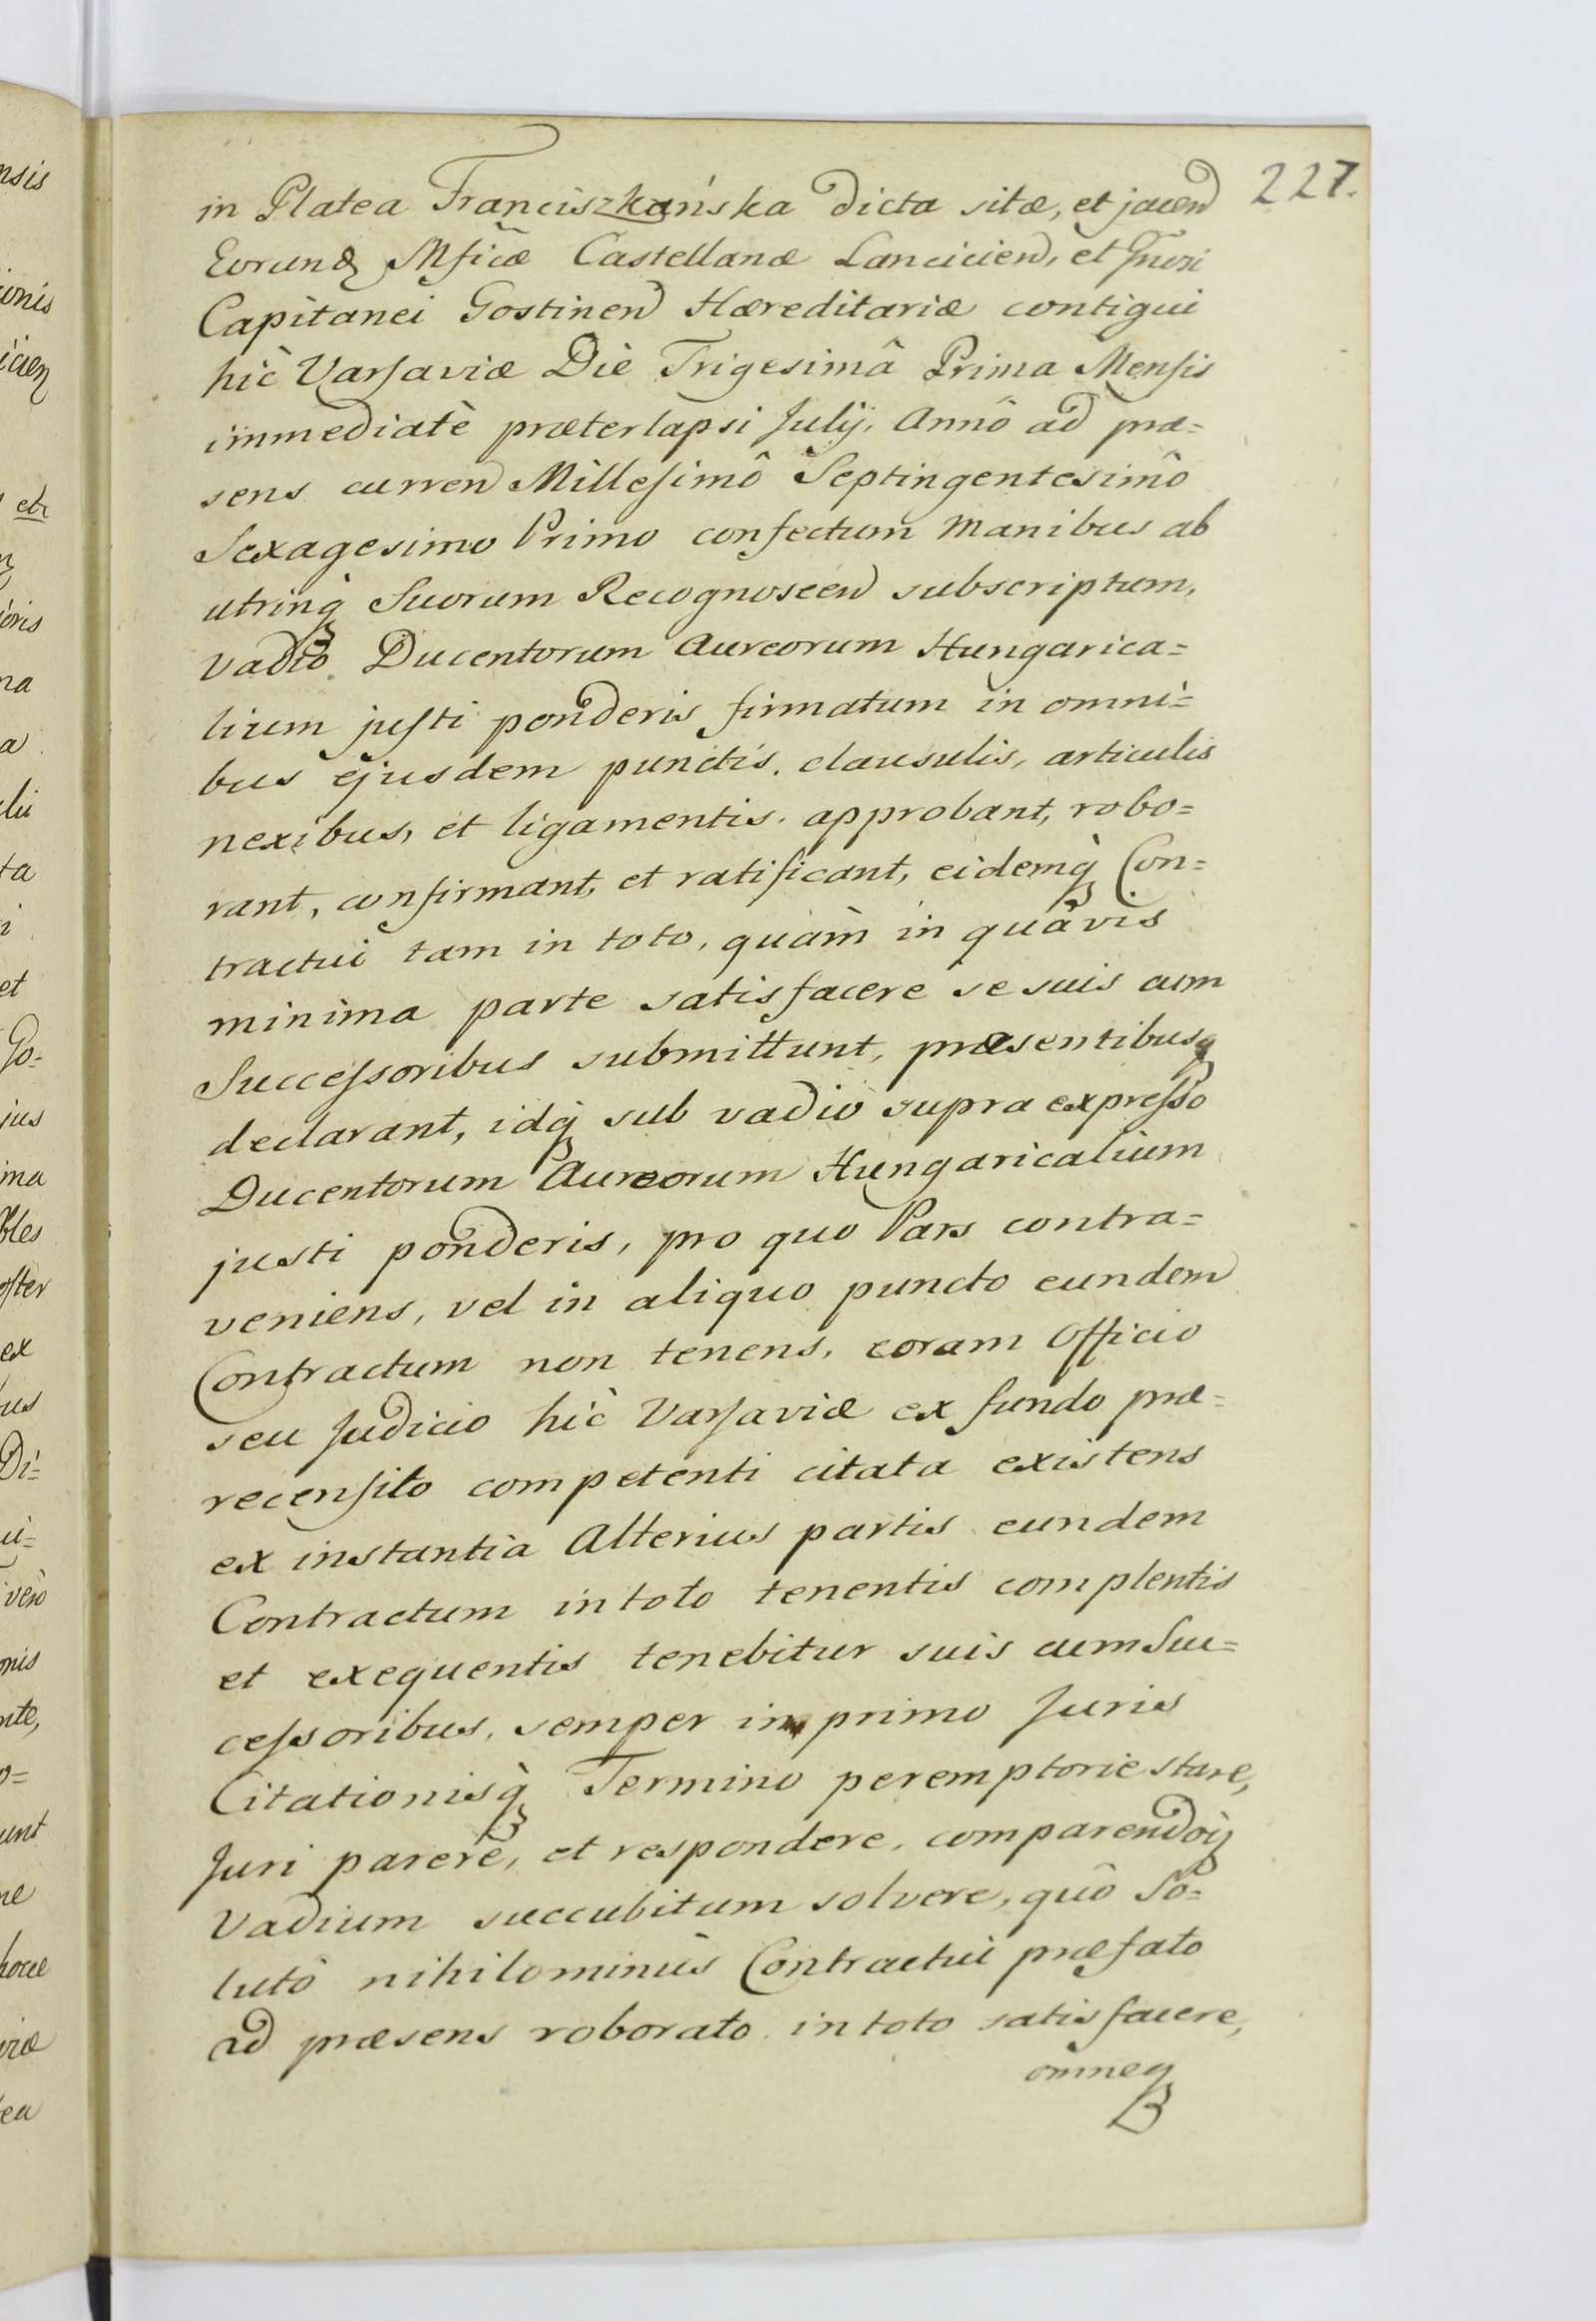 227.
in Platea Franciszkańska dicta sitæ, et jacen
Eorund Mficæ Castellanæ Lancicien, et Gnesi
Capitanei Gostinen Hæreditariæ contigui
hìc Varsaviæ Die Trigesimâ Prima Mensis
immediatè præterlapsi Julij, Annô ad præ=
sens curren Millesimô Septingentesimô
Sexagesimo Primo confectum manibus ab
utrinq Suorum Recognoscen subscriptum,
vadio Ducentorum Aureorum Hungarica=
lium justi ponderis firmatum in omni=
bus ejusdem punctis, clausulis, articulis
nexibus, et ligamentis, approbant, robo=
rant, confirmant, et ratificant, eidemq Con=
tractui tam in toto, quàm in quâvis
minima parte satisfacere se suis cum
Successoribus submittunt, præsentibusq
declarant, idq sub vadio supra expresso
Ducentorum Aureorum Hungaricalium
justi ponderis, pro quo Pars contra=
veniens, vel in aliquo puncto eundem
Contractum non tenens, coram Officio
seu Judicio hìc Varsaviæ ex fundo præ=
recensito competenti citata existens
ex instantia Alterius partis eundem
Contractum in toto tenentis complentis
et exequentis tenebitur suis cum Suc=
cessoribus, semper in primo Juris
Citationisq Termino peremptorie stare,
Juri parere, et respondere, comparendoq
Vadium succubitum solvere, quô So=
lutô nihilominùs Contractui præfato
ad præsens roborato in toto satisfacere,
omneq